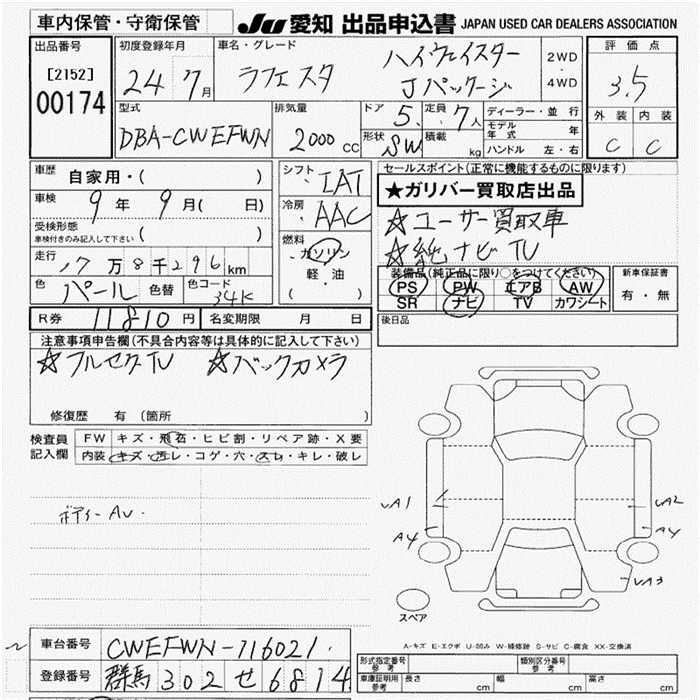 車内保管・守衛保管 JU 愛知 出品申込書 JAPAN USED CAR DEALERS ASSOCIATION
出品番号 初度登録年月 車名・グレード 評価点
[2152] 24 7月 ラフェスタ ハイウェイスター 2WD・4WD 3.5
00174 Jパッケージ
型式 排気量 ドア 5 定員 7人 ディーラー・並行 外装 内装
DBA-CWEFWN 2000cc 形状 SW 積載 kg モデル年式 年 C C
ハンドル 左・右
車歴 自家用・( ) シフト IAT セールスポイント(正常に機能するものに限ります)
車検 9年 9月( 日) 冷房 AAC ★ガリバー買取店出品
受検形態 ( ) ☆ユーザー買取車
車検付きのみ記入して下さい 燃料 ☆純ナビTV
走行 17万8千296km ガソリン 装備品(純正品に限り○をつけてください) 新車保証書
色 パール 色替 色コード 34K 軽・油 ( ) PS PW エアB AW 有・無
SR ナビ TV カワシート
R券 11810円 名変期限 月 日 後日品
注意事項申告欄(不具合内容等は具体的に記入して下さい)
☆フルセグTV ☆バックカメラ
修復歴 有 (箇所 )
検査員 FW キズ・飛石・ヒビ割・リペア跡・X要
記入欄 内装 キズ・汚レ・コゲ・穴・スレ・キレ・破レ
ボディーAU.
UA1 UA2
A4 A4
UA3
スペア
A-キズ E-エクボ U-凹み W-補修跡 S-サビ C-腐食 XX-交換済
車台番号 CWEFWN-116021 形式指定番号 参考 類別区分番号 参考
登録番号 群馬 302 せ 6814 車庫証明用 参考 長さ cm 幅 cm 高さ cm